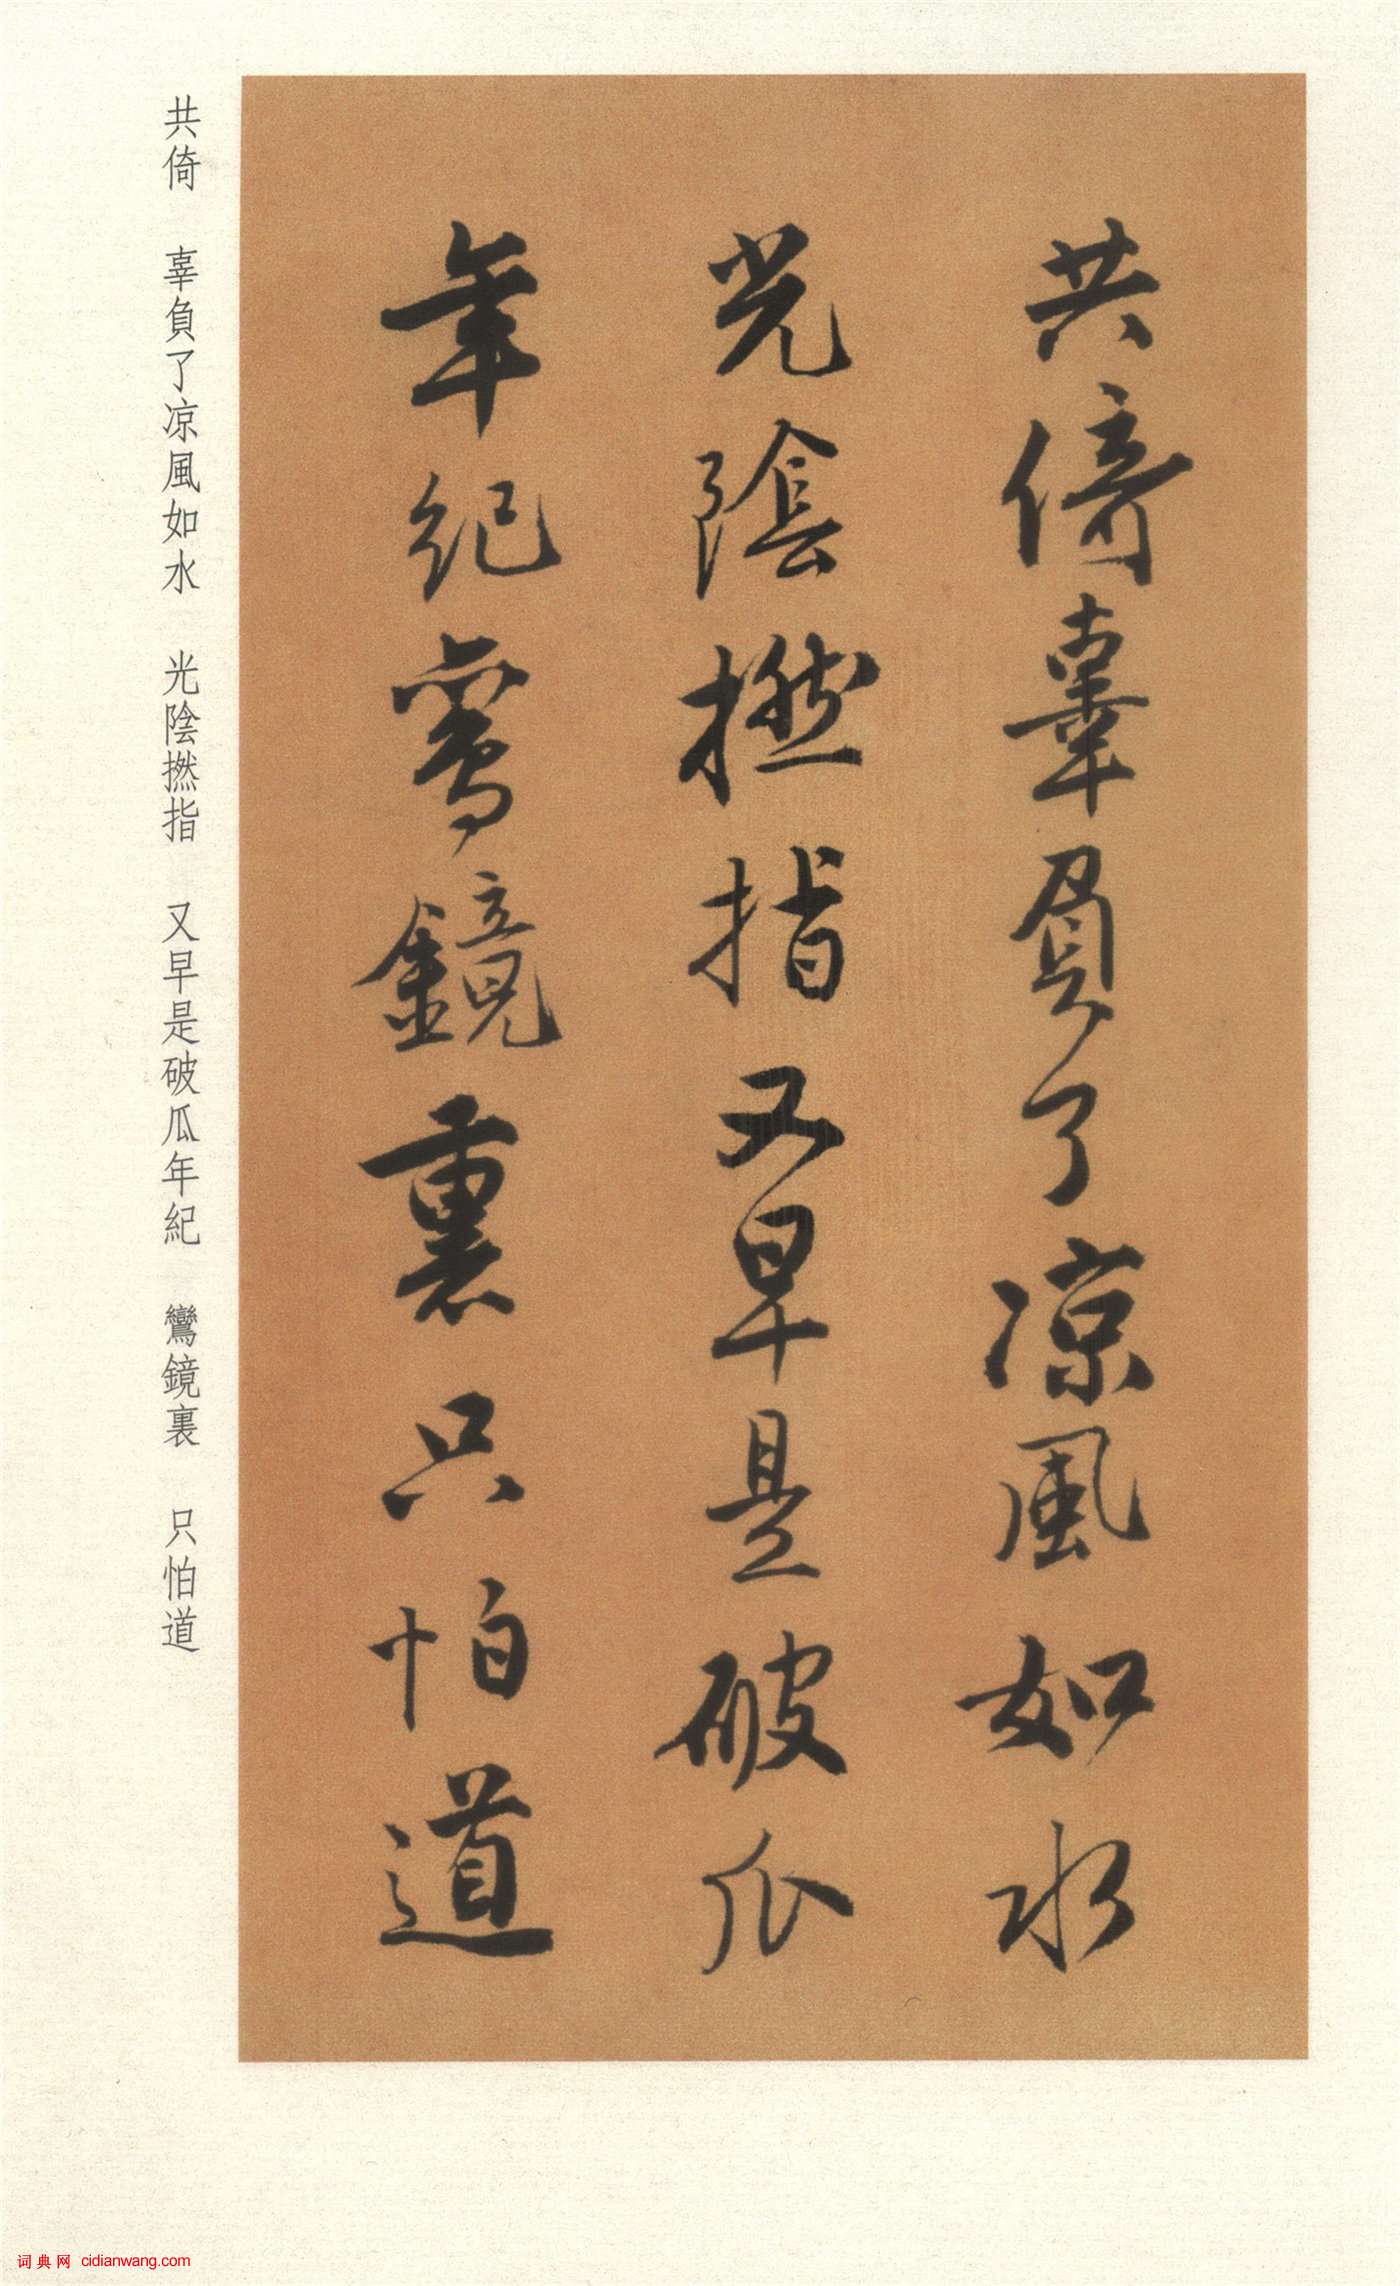 共倚辜負了凉風如水
光陰撚指又早是破瓜
年紀鸞鏡裏只怕道
共倚　辜負了凉風如水　光陰撚指　又早是破瓜年紀　鸞鏡裏　只怕道
词典网 cidianwang.com